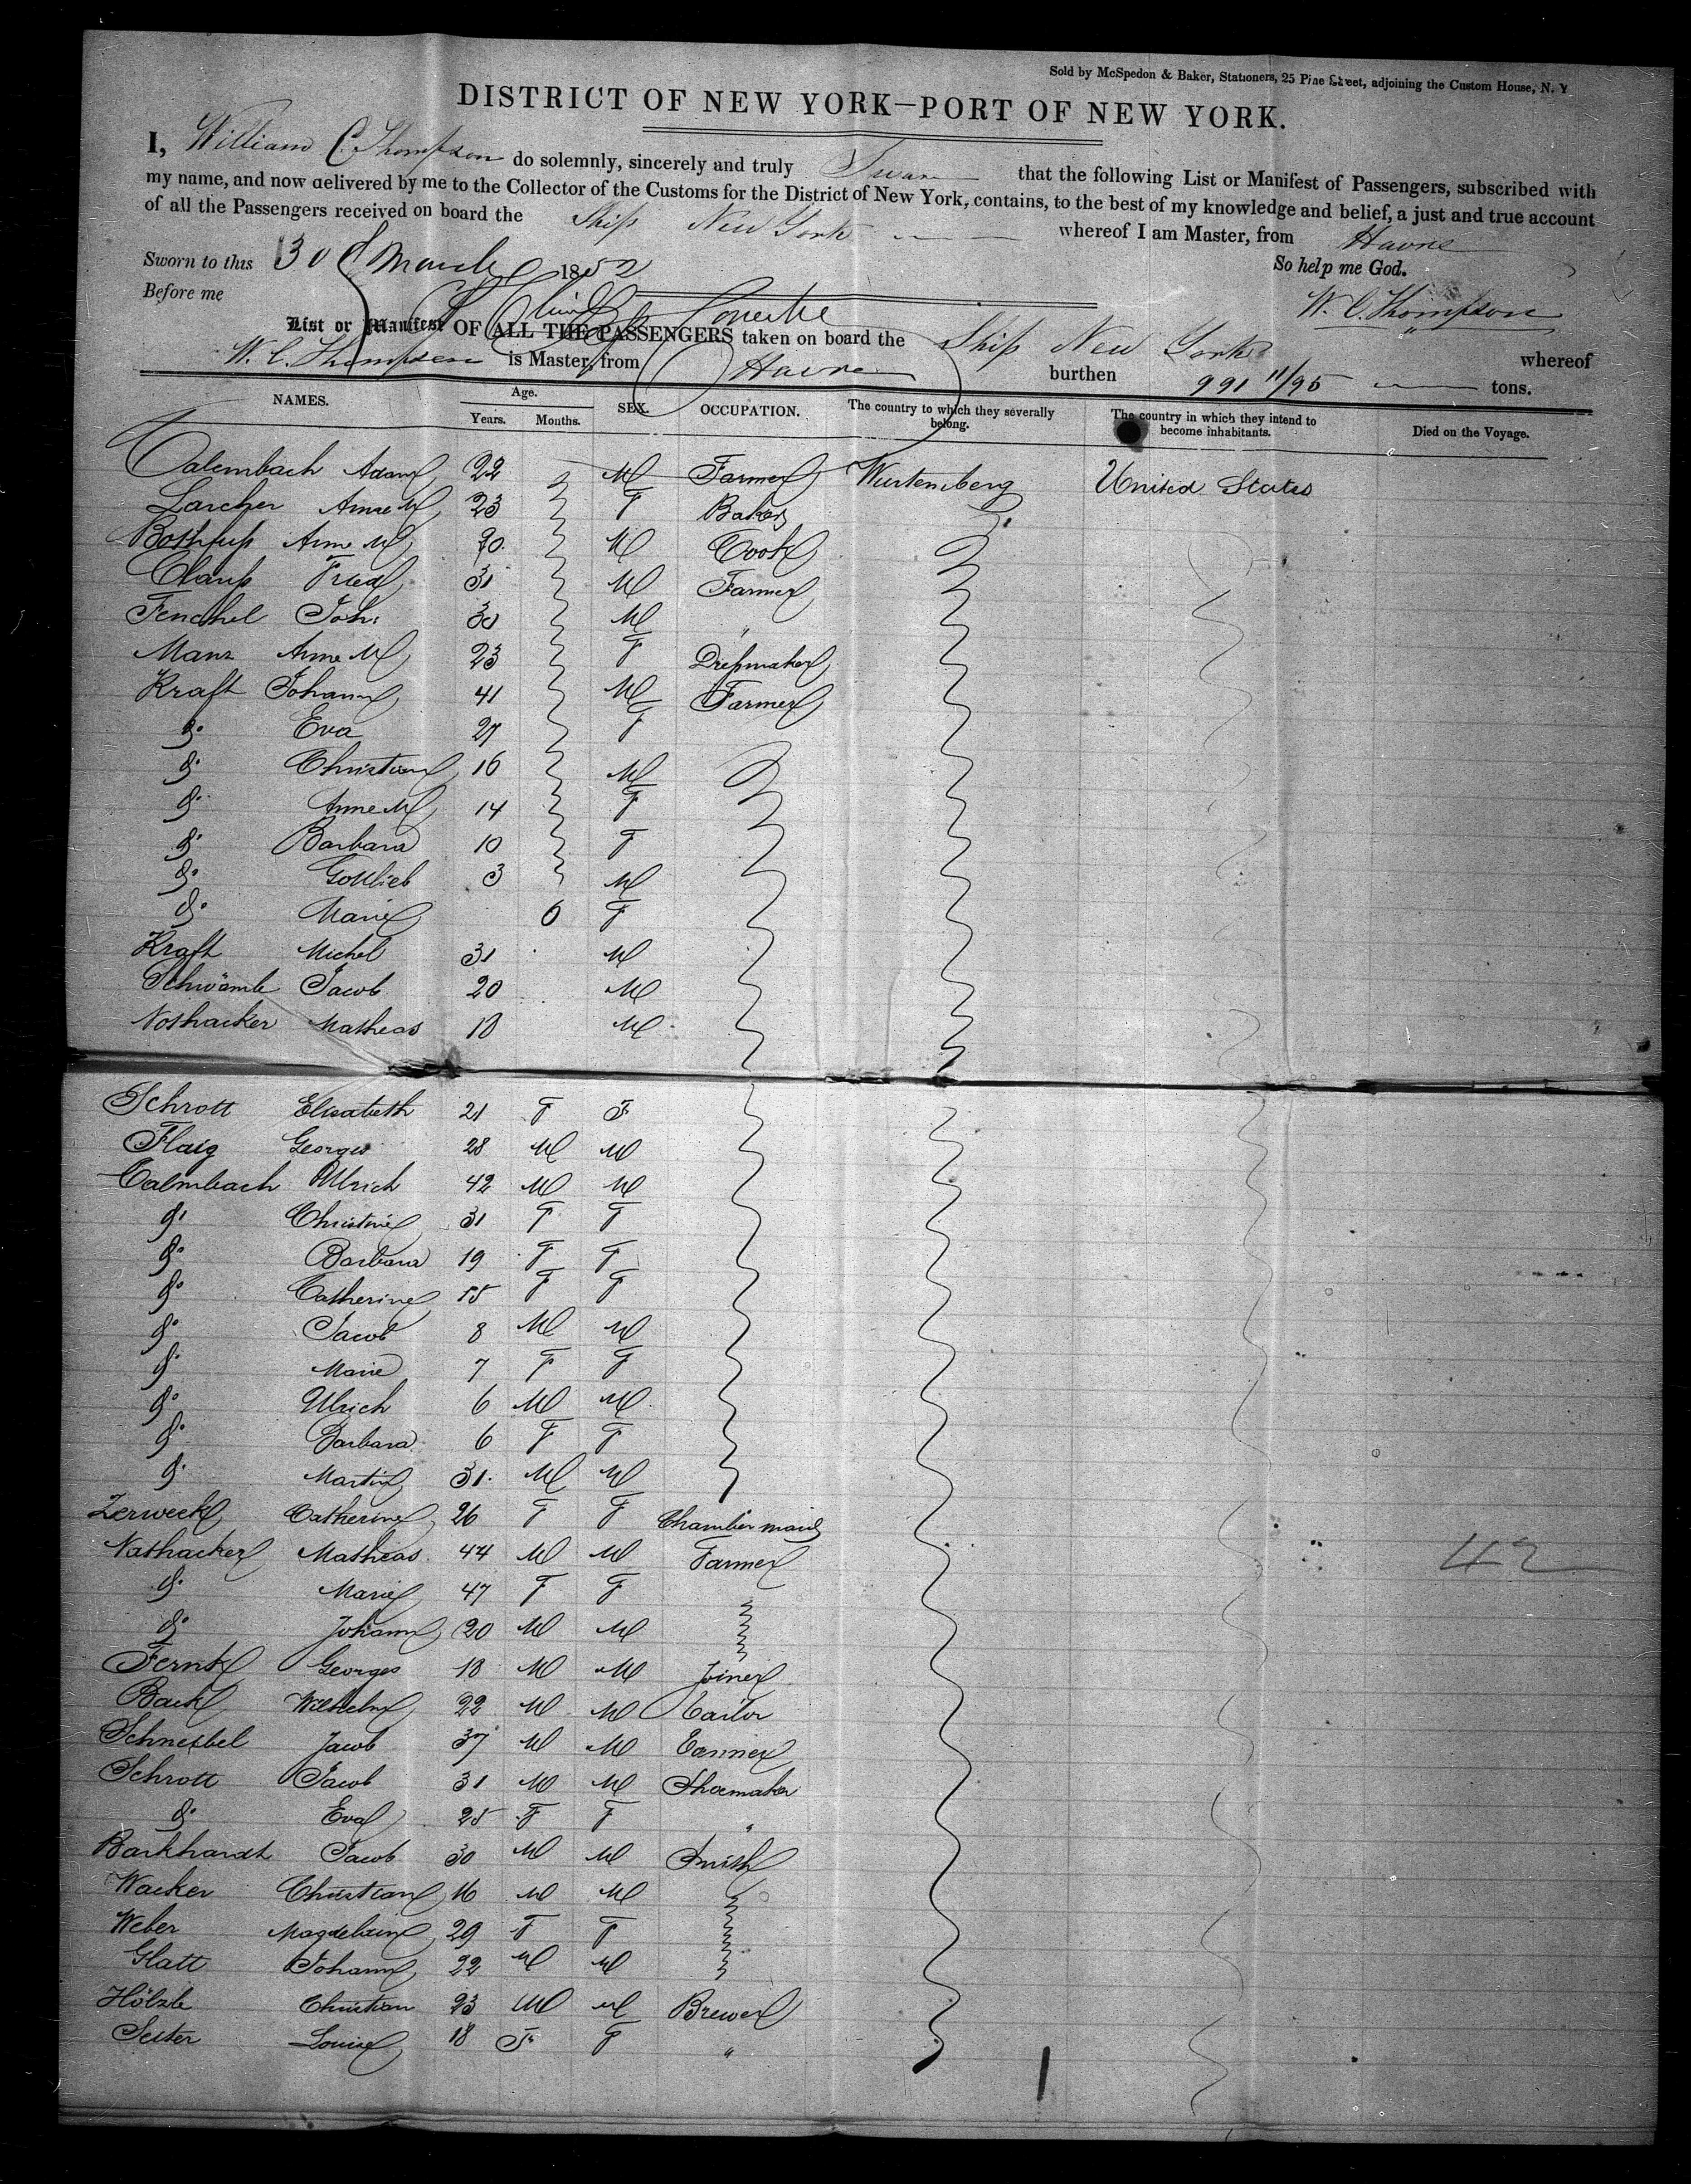 Sold by McSpedon & Baker, Stationers, 25 Pine Street, adjoining the Custom House, N. Y
DISTRICT OF NEW YORK—PORT OF NEW YORK.
I, William C. Thompson do solemnly, sincerely and truly Swear that the following List or Manifest of Passengers, subscribed with
my name, and now delivered by me to the Collector of the Customs for the District of New York, contains, to the best of my knowledge and belief, a just and true account
of all the Passengers received on board the Ship New York whereof I am Master, from Havre
Sworn to this 30 March 1852 So help me God.
Before me W. C. Thompson
List or Manifest OF ALL THE PASSENGERS taken on board the Ship New York whereof
W. C. Thompson is Master, from Havre burthen 991 11/95 tons.
NAMES. Age. Years. Months. SEX. OCCUPATION. The country to which they severally belong. The country in which they intend to become inhabitants. Died on the Voyage.
Calembach Adam 22 M Farmer Wurtemberg United States
Larcher Anne M 23 F Baker
Anne M M Cook
Fried 31 M Farmer
Fenchel Joh: 30 M "
Manz Anne M 23 F Dressmaker
Kraft Johann 41 M Farmer
do Eva 27 F
do Christian 16 M
do Anne M 14 F
do Barbara 10 F
do Gottlieb 3 M
do Marie 6 F
Kraft Michel 31 M
Schwämle Jacob 20 M
Nothacker Matheas 18 M
Schrott Elisabeth 21 F F
Flaig Georges 28 M M
Calmbach Ulrich 42 M M
do Christine 31 F F
do Barbara 19 F F
do Catherine 15 F F
do Jacob 8 M M
do Marie 7 F F
do Ulrich 6 M M
do Barbara 6 F F
do Martin 31 M M
Zerweck Catherine 26 F F Chamber maid
Nathacker Matheas 44 M M Farmer 42
do Marie 47 F F
do Johann 20 M M
Georges 18 M M Joiner
Back Wilhelm 22 M M Tailor
Schneibel Jacob 37 M M Farmer
Schrott Jacob 31 M M Shoemaker
do Eva 25 F F "
Barkhardt Jacob 30 M M Smith
Wacker Christian 16 M M
Weber Magdelaine 29 F F
Glatt Johann 22 M M
Hölzle Christian 23 M M Brewer
Seiter Louise 18 F F "